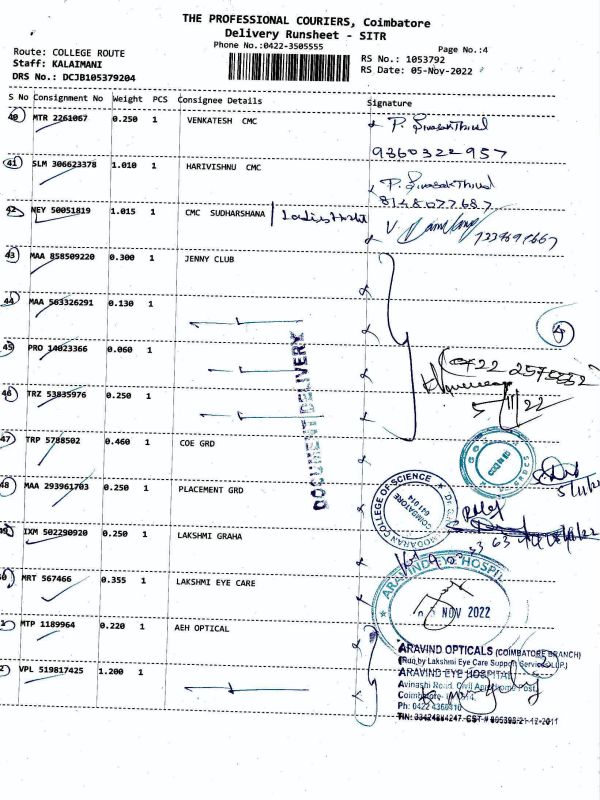 THE PROFESSIONAL COURIERS, Coimbatore
Delivery Runsheet - SITR
Phone No.:0422-3505555
Page No.:4
Route: COLLEGE ROUTE
Staff: KALAIMANI
DRS No.: DCJB105379204
RS No.: 1053792
RS Date: 05-Nov-2022
S No Consignment No Weight PCS Consignee Details Signature
40 MTR 2261067 0.250 1 VENKATESH CMC
9360322957
41 SLM 306623378 1.010 1 HARIVISHNU CMC
8148077687
42 NEY 50051819 1.015 1 CMC SUDHARSHANA
43 MAA 858509220 0.300 1 JENNY CLUB
44 MAA 563326291 0.130 1
45 PRO 14023366 0.060 1
46 TRZ 53835976 0.250 1
5/11/22
DOCUMENT DELIVERY
47 TRP 5788502 0.460 1 COE GRD
48 MAA 293961703 0.250 1 PLACEMENT GRD
COLLEGE OF SCIENCE
COIMBATORE
641 014
IXM 502290920 0.250 1 LAKSHMI GRAHA
MRT 567466 0.355 1 LAKSHMI EYE CARE
ARAVIND EYE HOSPIT
NOV 2022
MTP 1189964 0.220 1 AEH OPTICAL
VPL 519817425 1.200 1
ARAVIND OPTICALS (COIMBATORE BRANCH)
(Run by Lakshmi Eye Care Support Services LLP.)
ARAVIND EYE HOSPITAL
Avinashi Road, Civil Aerodrome Post,
Ph: 0422 4360410